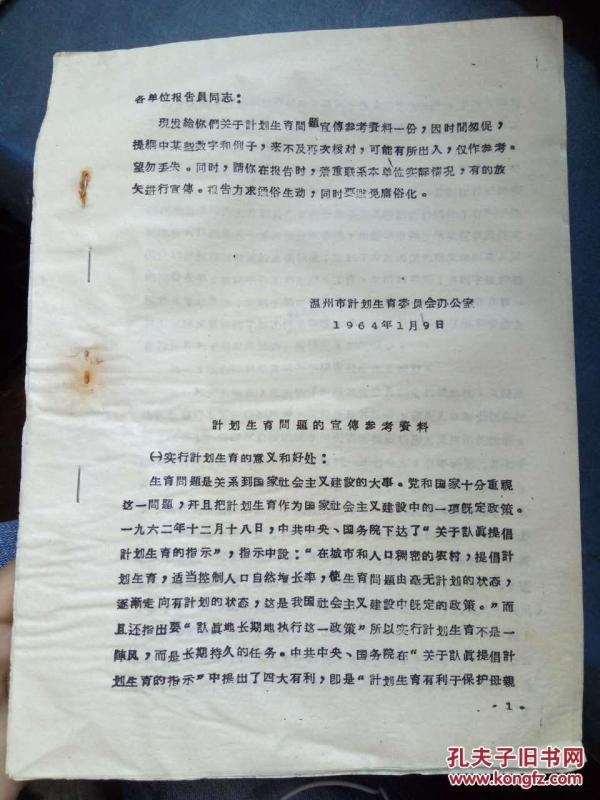 各单位报告員同志：
現发給你們关于計划生育問題宣傳参考資料一份，因时間怱促，
提綱中某些数字和例子，来不及再次核对，可能有所出入，仅作参考。
望勿丢失。同时，請你在报告时，着重联系本单位实际情况，有的放
矢进行宣傳。报告力求通俗生动，同时要避免庸俗化。
温州市計划生育委員会办公室
1964年1月9日
計划生育問題的宣傳参考資料
㈠实行計划生育的意义和好处：
生育問題是关系到国家社会主义建設的大事。党和国家十分重視
这一問題，幷且把計划生育作为国家社会主义建設中的一項既定政策。
一九六二年十二月十八日，中共中央、国务院下达了“关于認眞提倡
計划生育的指示”，指示中說：“在城市和人口稠密的农村，提倡計
划生育，适当控制人口自然增长率，使生育問題由毫无計划的状态，
逐漸走向有計划的状态，这是我国社会主义建設中既定的政策。”而
且还指出要“認眞地长期地执行这一政策”所以实行計划生育不是一
陣风，而是长期持久的任务。中共中央、国务院在“关于認眞提倡計
划生育的指示”中提出了四大有利，卽是“計划生育有利于保护母親
·1·
孔夫子旧书网
www.kongfz.com